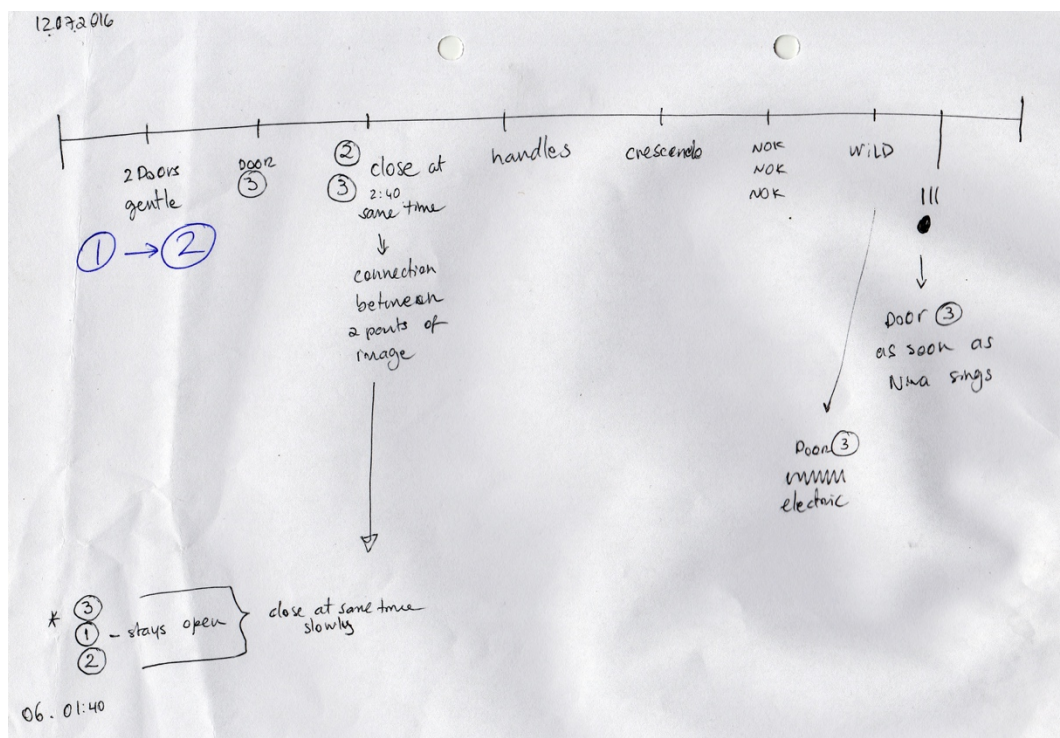 12.07.2016
2 Doors
gentle
1 → 2
DOOR
3
2
3
close at
2:40
same time
↓
connection
between
2 points of
image
handles
crescendo
NOK
NOK
NOK
WILD
Door 3
electric
|||
Door 3
as soon as
Nina sings
* 3
1 - stays open
2
close at same time
slowly
06. 01:40